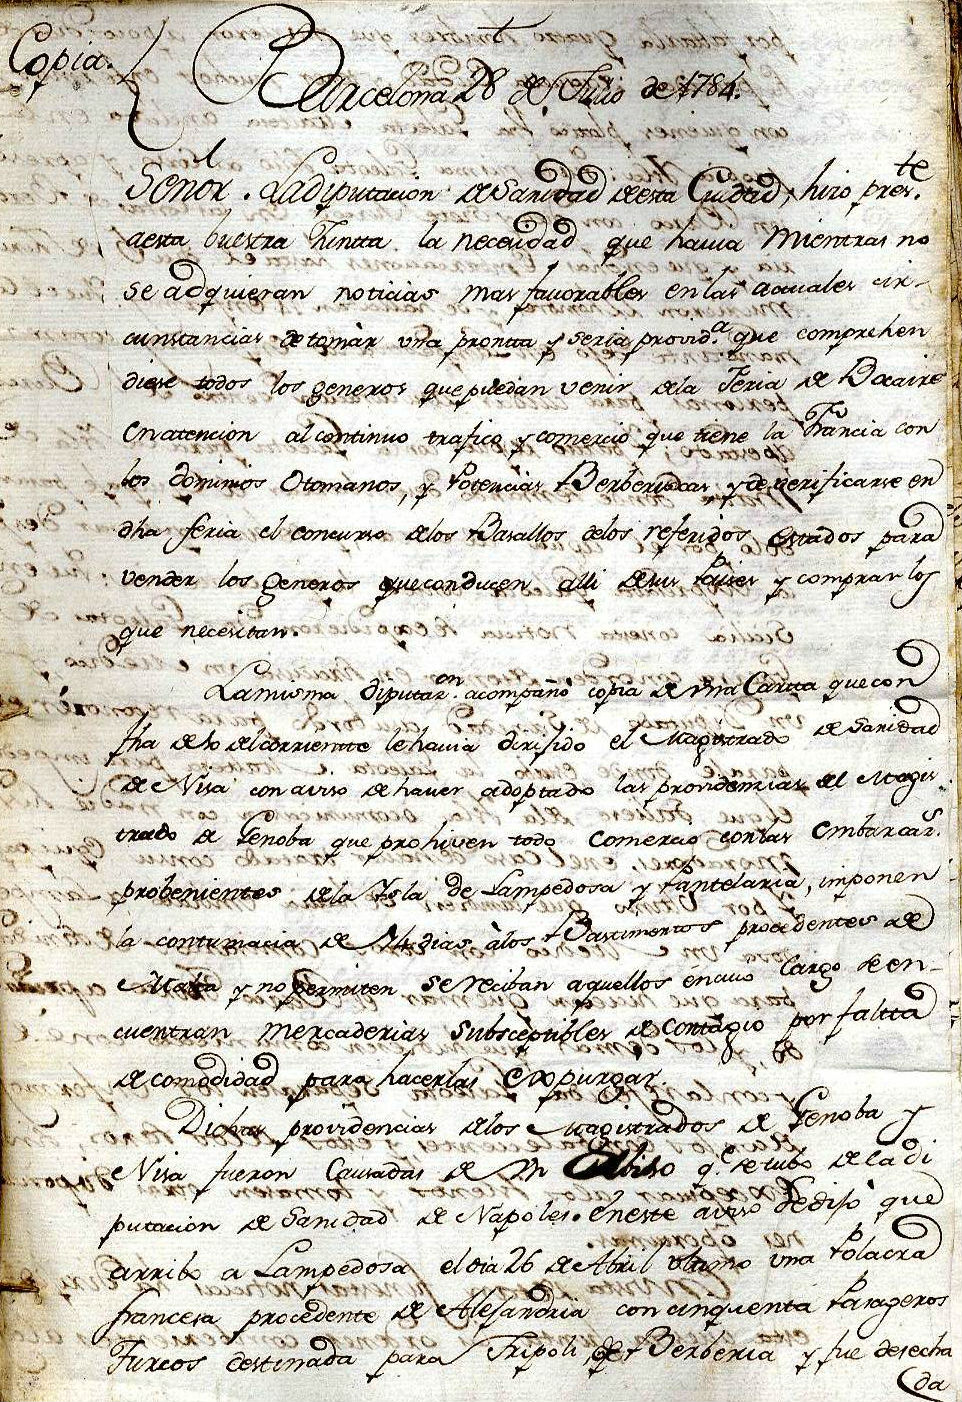 Copia.
Barcelona 28 de Julio de 1784.
Señor. La diputacion de Sanidad de esta Ciudad, hizo pres.te
a esta buestra Juntta la necesidad que havia mientras no
se adquieran noticias mas favorables en las actuales cir-
cunstancias de tomàr una prontta y seria provid.a que comprehen
diese todos los generos que puedan venir de la Feria de Bocaire
en atencion al continuo trafico y comercio que tiene la Francia con
los dominios Otomanos, y Potencias Berberiscas y de verificarse en
dha feria el concurso de los Basallos de los referidos estados para
vender los generos que conducen alli de sus Paises y comprar los
que necesitan.
La misma diputaz.on acompañó copia de una Cartta que con
fha de 10 del corrientte le havia dirijido el Magistrado de Sanidad
de Nisa con aviso de haver adoptado las providencias del Magis
trado de Genoba que prohiven todo comercio con las embarcaz.s
probenientes de la Ysla de Lampedosa y Pantelaria, imponen
la contumacia de 14 dias à los Bastimentos procedentes de
Malta y no permiten se reciban aquellos en cuio cargo se en-
cuentran mercaderias subsceptibles de contagio por faltta
de comodidad para hacerlas expurgar.
Dichas providencias de los Magistrados de Genoba y
Nisa fueron causadas de un Abiso q.e se tubo de la di
putacion de Sanidad de Napoles. En este aviso se dijo que
arribo a Lampedosa el dia 26 de Abril ultimo una Polacra
francesa procedente de Alejandria con cinquenta Pasageros
Turcos destinada para Tripoli de Berberia y fue desecha
da